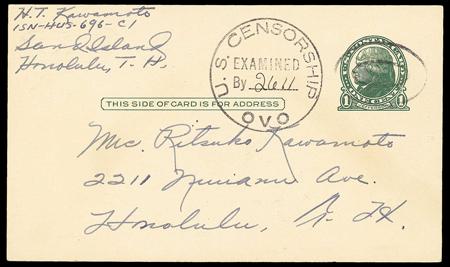 H.T. Kawamoto
ISN-HUS-696-CI
Sand Island
Honolulu, T. H.
U.S. CENSORSHIP
EXAMINED
By 2611
OVO
THIS SIDE OF CARD IS FOR ADDRESS
1 1
Mrs. Ritsuko Kawamoto
2211 Nuuanu Ave.
Honolulu, T. H.